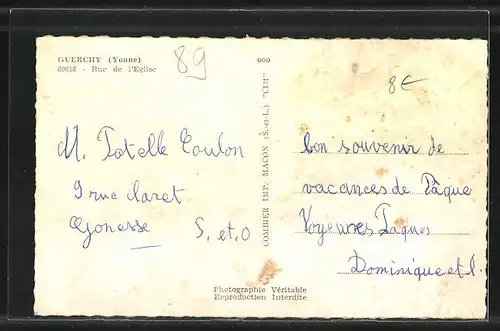 GUERCHY (Yonne)
89618 - Rue de l'Eglise
89
000
8€
COMBIER IMP. MACON (S.-et-L.) "CIM"
M. Totelle Coulon
9 rue claret
Gonesse S. et. O
bon souvenir de
vacances de Pâque
Jaques
Dominique et
Photographie Véritable
Reproduction Interdite